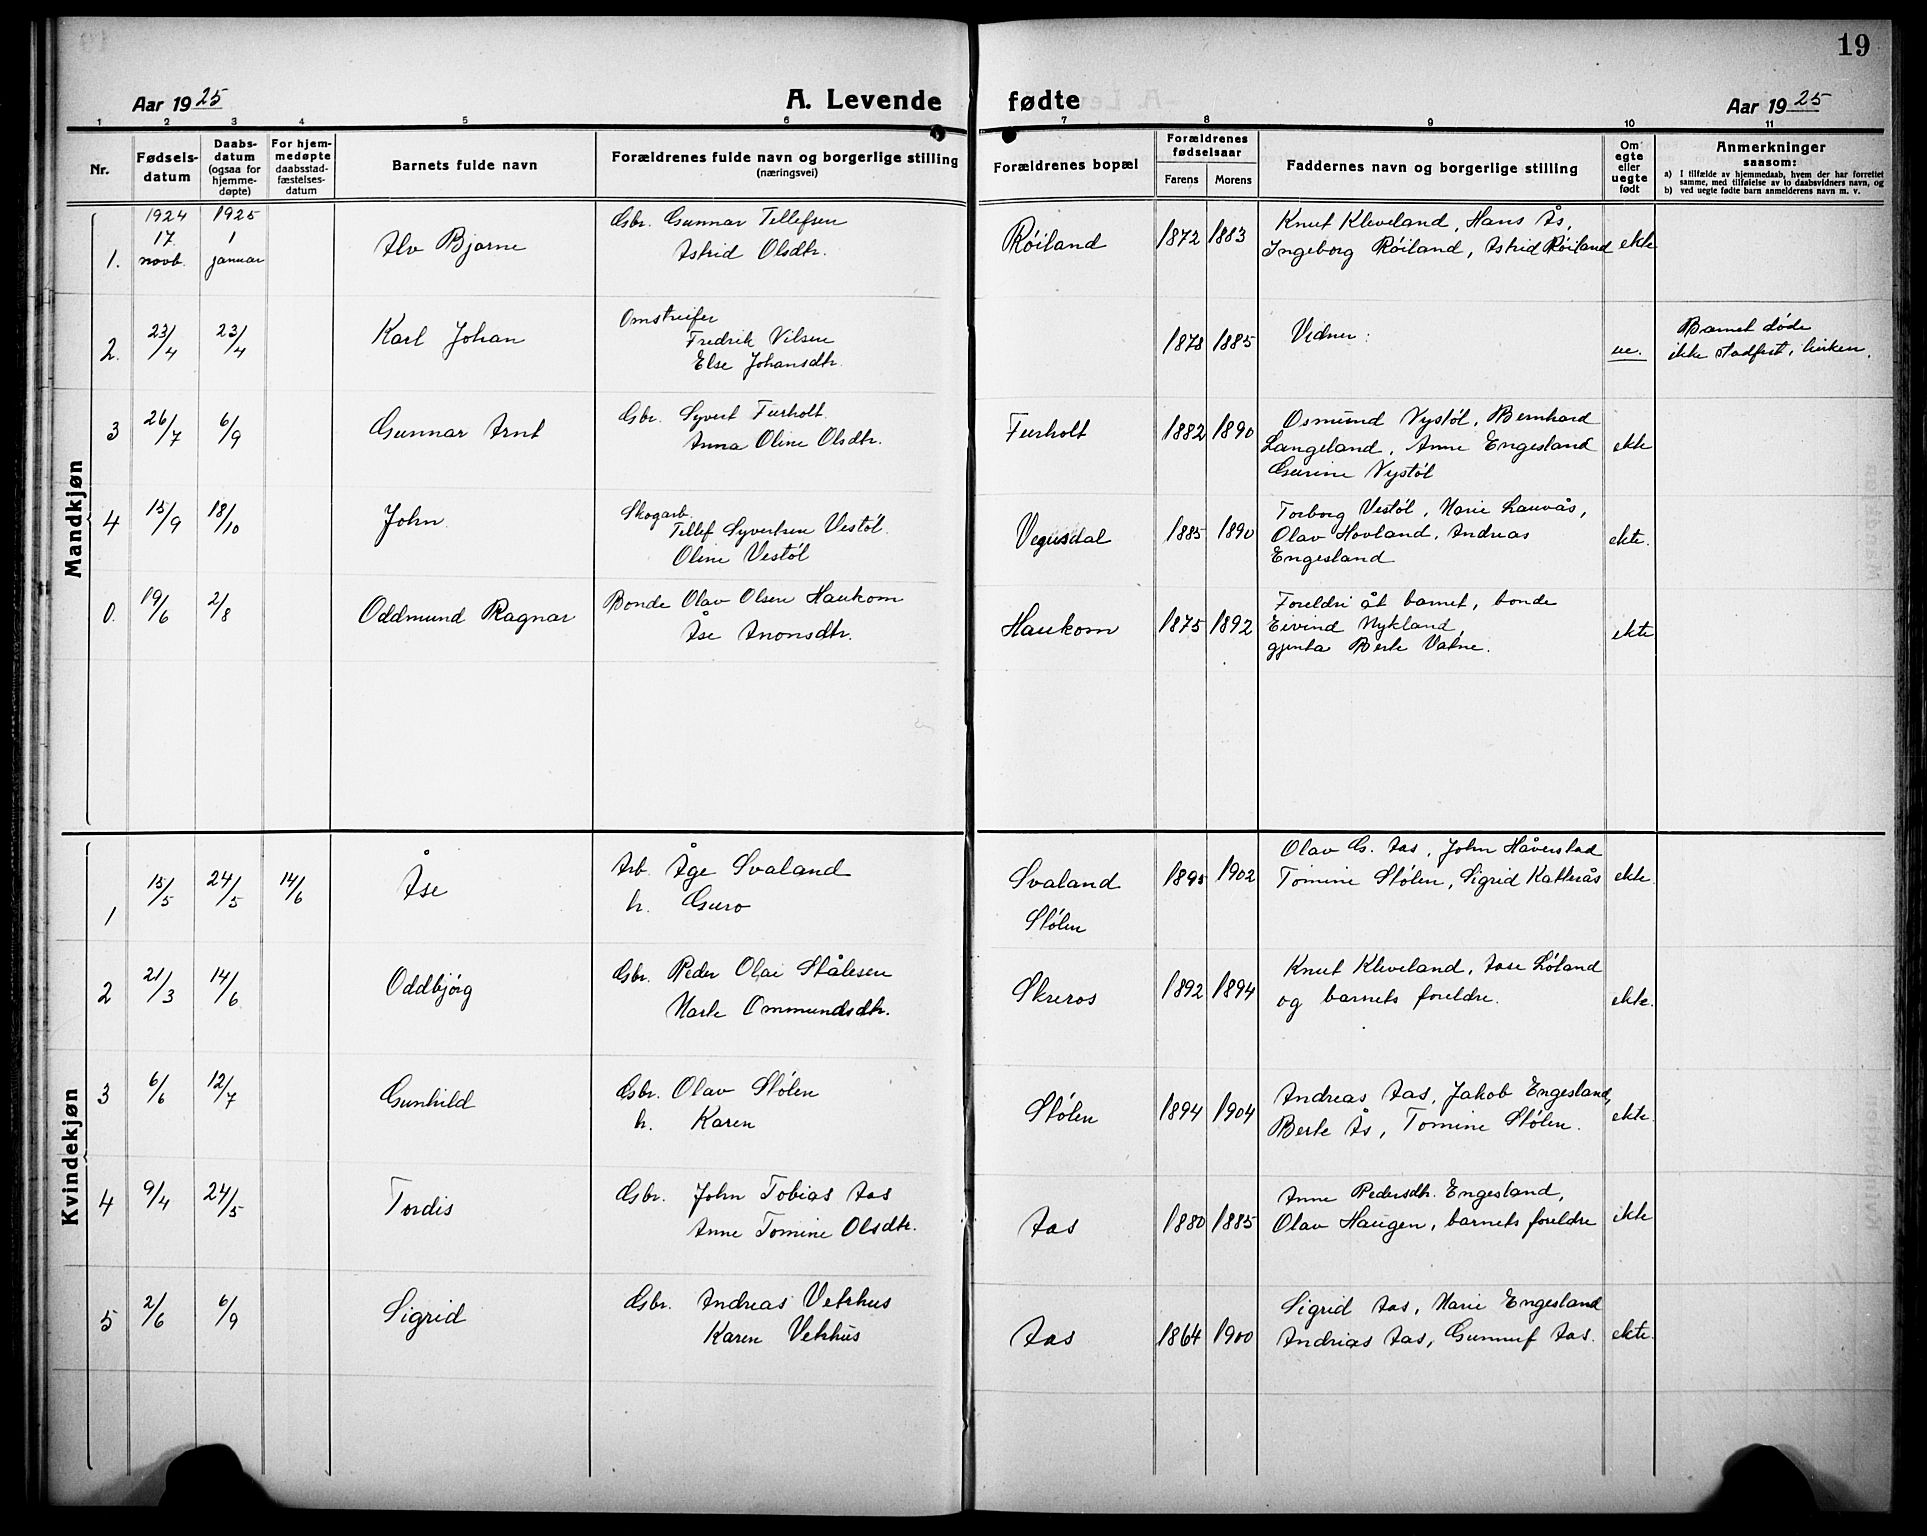 19
Aar 1925 A. Levende fødte Aar 1925
1 2 3 4 5 6 7 8 9 10 11
Nr.
Fødsels-
datum
Daabs-
datum
(ogsaa for
hjemme-
døpte)
For hjem-
medøpte
daabsstad-
fæstelses-
datum
Barnets fulde navn
Forældrenes fulde navn og borgerlige stilling
(næringsvei)
Forældrenes bopæl
Forældrenes
fødselsaar
Farens Morens
Faddernes navn og borgerlige stilling
Om
egte
eller
uegte
født
Anmerkninger
saasom:
a) I tilfælde av hjemmedaab, hvem der har forrettet
samme, med tilføielse av to daabsvidners navn, og
b) ved uegte fødte barn anmelderens navn m. v.
Mandkjøn
1.
1924
17
novb.
1925
1
januar
Alv Bjarne
Gbr. Gunnar Tellefsen
Astrid Olsdtr.
Røiland
1872 1883
Knut Kleveland, Hans Ås,
Ingeborg Røiland, Astrid Røiland
ekte
2.
23/4
23/4
Karl Johan
Omstreifer
Fredrik Nilsen
Else Johansdtr.
1878 1885
Vidner:
ue.
Barnet døde
ikke stadfest i kirken.
3
26/7
6/9
Gunnar Arnt
Gbr. Syvert Furholt
Anna Oline Olsdtr.
Furholt
1882 1890
Osmund Nystøl, Bernhard
Langeland, Anne Engesland
Gurine Nystøl
ekte
4
15/9
18/10
John
Skogarb.
Tellef Syvertsen Vestøl.
Oline Vestøl
Vegusdal
1885 1890
Torborg Vestøl, Marie Lauvås,
Olav Hovland, Andreas
Engesland
ekte.
0.
19/6
2/8
Oddmund Ragnar
Bonde Olav Olsen Haukom
Åse Anonsdtr.
Haukom
1875 1892
Foreldri åt barnet, bonde
Eivind Mykland,
gjenta Berte Vatne.
ekte
Kvindekjøn
1
15/5
24/5
14/6
Åse
Arb. Åge Svaland
h. Guro
Svaland
Stølen
1895 1902
Olav G. Aas, John Håverstad
Tomine Stølen, Sigrid Katterås
ekte.
2
21/3
14/6
Oddbjørg
Gbr. Peder Olai Stålesen
Marte Ommundsdtr.
Skreros
1892 1894
Knut Kleveland, Aase Løland
og barnets foreldre.
ekte.
3
6/6
12/7
Gunhild
Gbr. Olav Stølen
h. Karen
Stølen
1894 1904
Andreas Aas, Jakob Engesland,
Berte Ås, Tomine Stølen.
ekte.
4
9/4
24/5
Tordis
Gbr. John Tobias Aas
Anne Tomine Olsdtr.
Aas
1880 1885
Anne Pedersdtr. Engesland,
Olav Haugen, barnets foreldre
ekte
5
2/6
6/9
Sigrid
Gbr. Andreas Vetrhus
Karen Vetrhus
Aas
1864 1900
Sigrid Aas, Marie Engesland
Andreas Aas, Gunnuf Aas.
ekte.